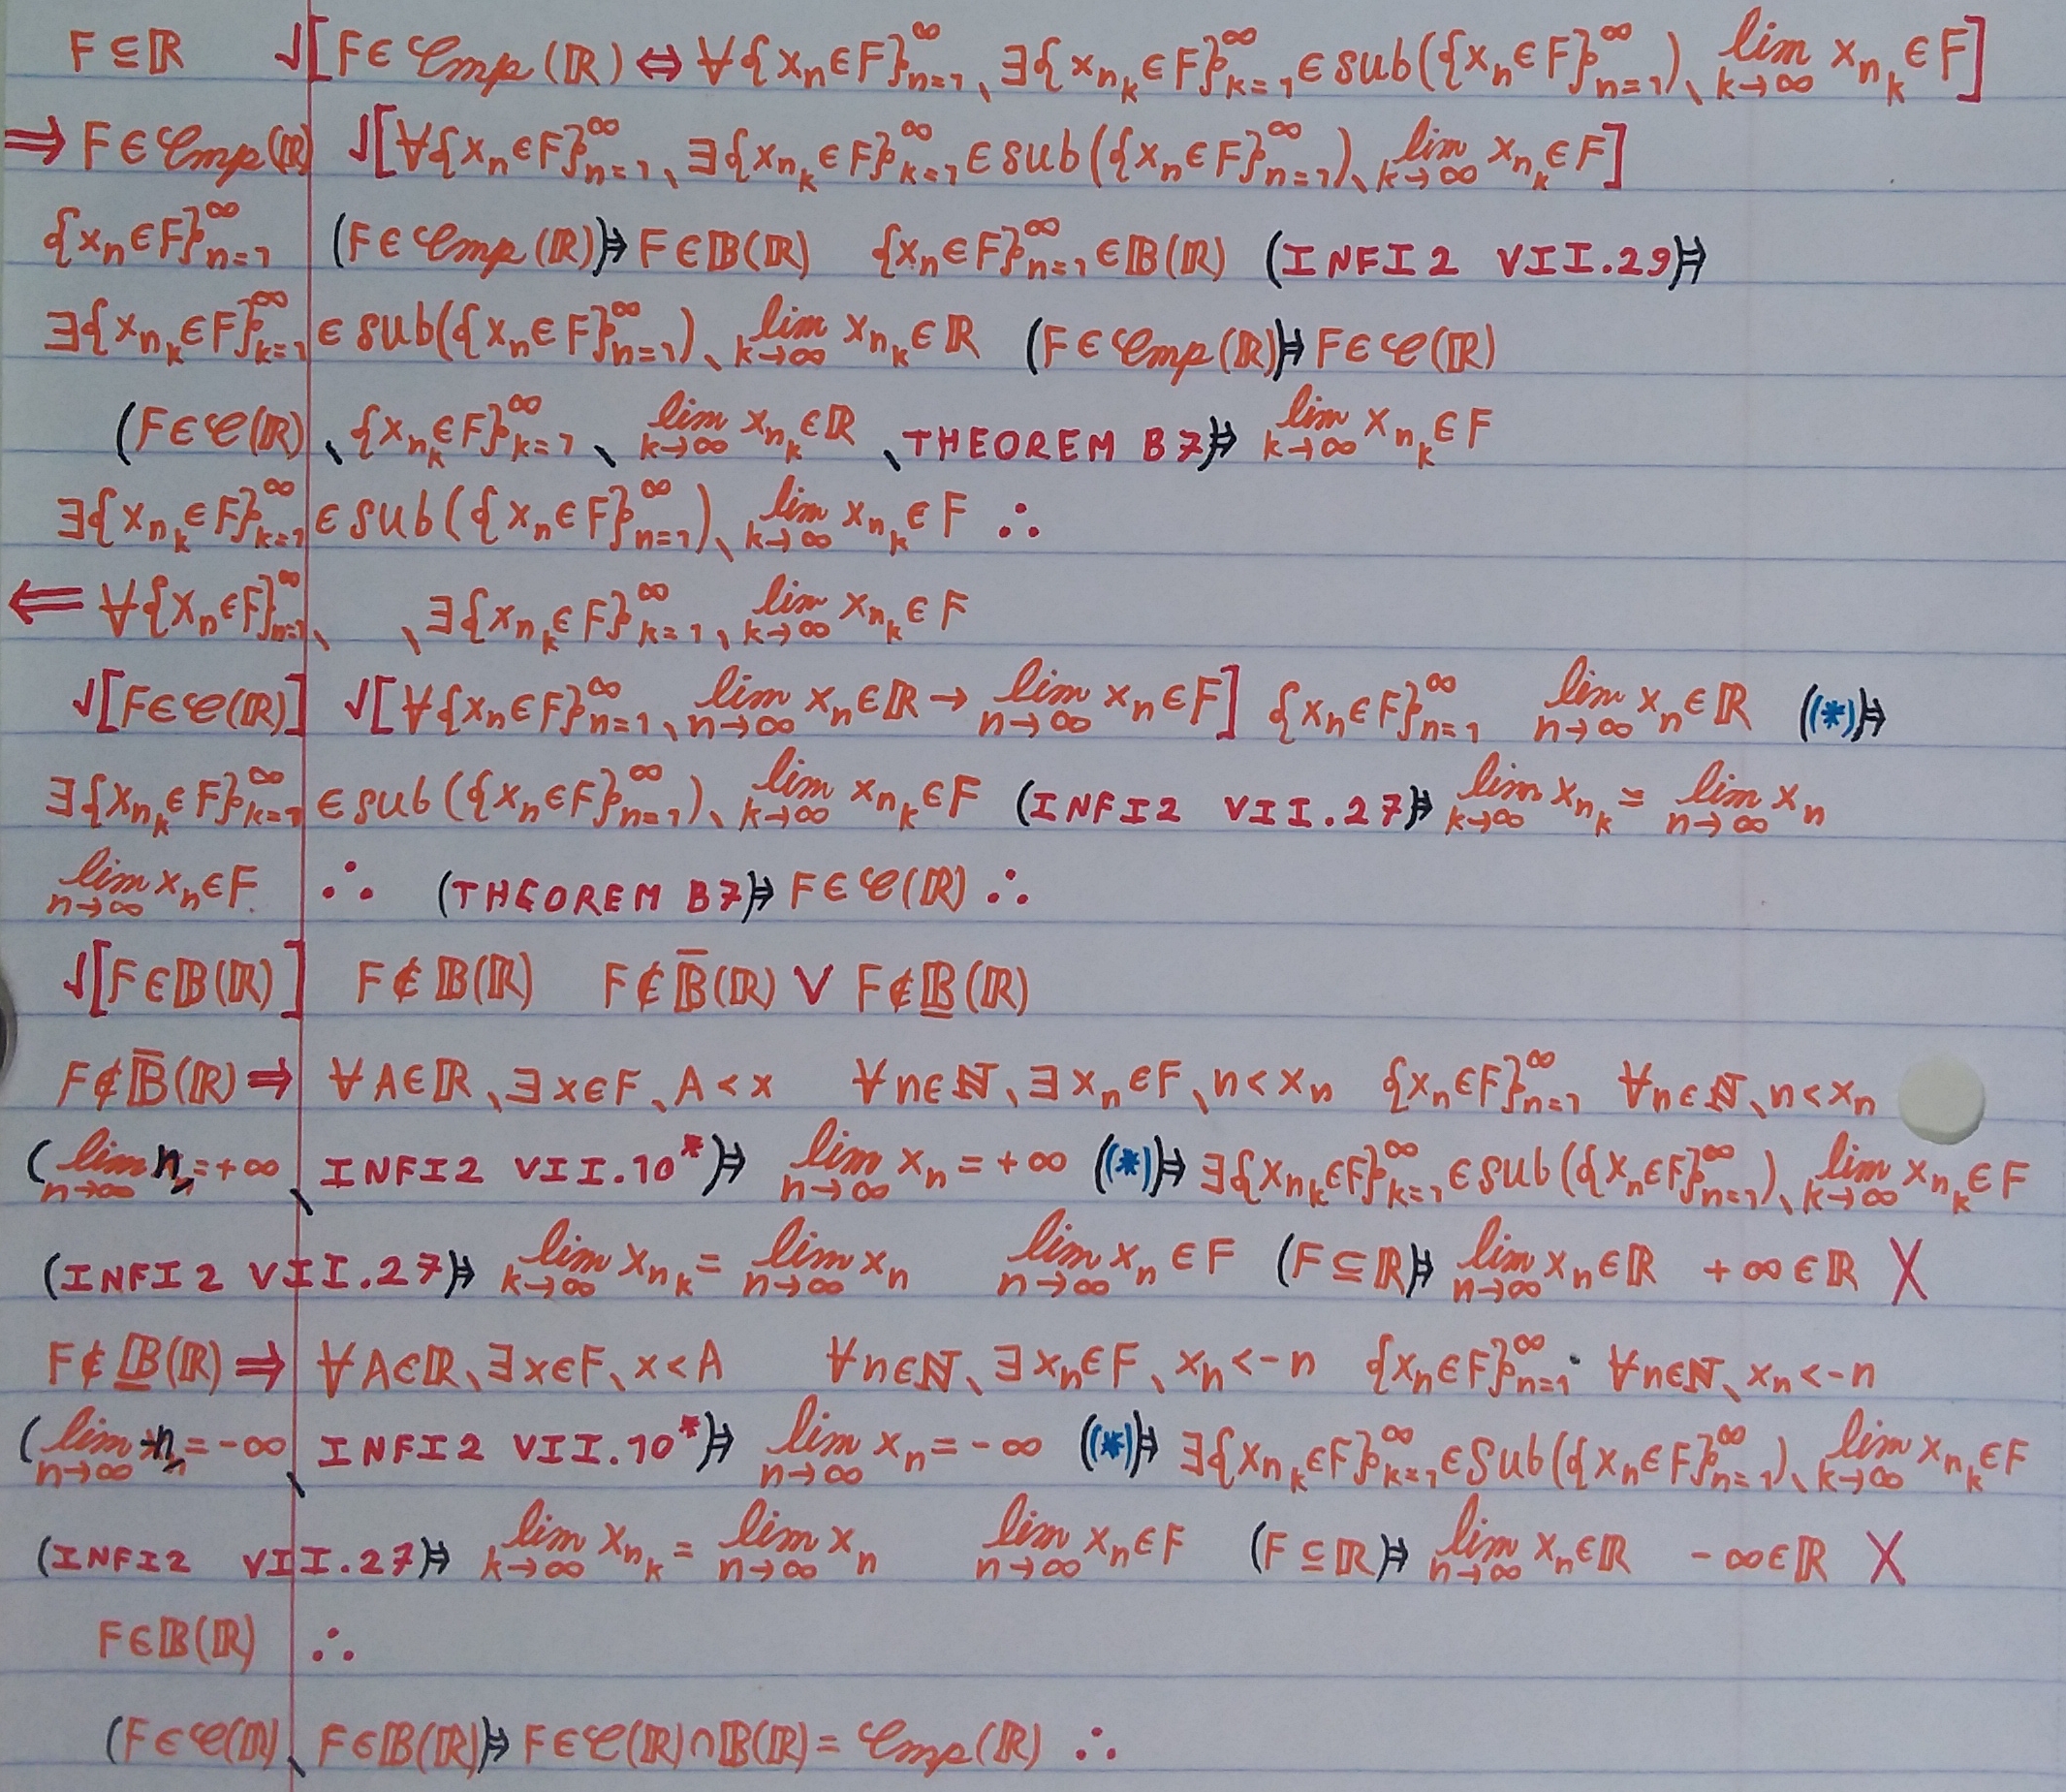 F⊆ℝ √[F∈𝒞mp(ℝ)⇔∀{xₙ∈F}ₙ₌₁^∞、∃{x_{n_k}∈F}ₖ₌₁^∞∈sub({xₙ∈F}ₙ₌₁^∞)、lim_{k→∞} x_{n_k}∈F]
⇒ F∈𝒞mp(ℝ) √[∀{xₙ∈F}ₙ₌₁^∞、∃{x_{n_k}∈F}ₖ₌₁^∞∈sub({xₙ∈F}ₙ₌₁^∞)、lim_{k→∞} x_{n_k}∈F]
{xₙ∈F}ₙ₌₁^∞ (F∈𝒞mp(ℝ))⇒ F∈𝔹(ℝ) {xₙ∈F}ₙ₌₁^∞∈𝔹(ℝ) (INFI2 VII.29)⇒
∃{x_{n_k}∈F}ₖ₌₁^∞∈sub({xₙ∈F}ₙ₌₁^∞)、lim_{k→∞} x_{n_k}∈ℝ (F∈𝒞mp(ℝ))⇒ F∈𝒞(ℝ)
(F∈𝒞(ℝ)、{x_{n_k}∈F}ₖ₌₁^∞、lim_{k→∞} x_{n_k}∈ℝ、THEOREM B7)⇒ lim_{k→∞} x_{n_k}∈F
∃{x_{n_k}∈F}ₖ₌₁^∞∈sub({xₙ∈F}ₙ₌₁^∞)、lim_{k→∞} x_{n_k}∈F ∴
⇐ ∀{xₙ∈F}ₙ₌₁^∞、 、∃{x_{n_k}∈F}ₖ₌₁^∞、lim_{k→∞} x_{n_k}∈F
√[F∈𝒞(ℝ)] √[∀{xₙ∈F}ₙ₌₁^∞、lim_{n→∞} xₙ∈ℝ→lim_{n→∞} xₙ∈F] {xₙ∈F}ₙ₌₁^∞ lim_{n→∞} xₙ∈ℝ ((*))⇒
∃{x_{n_k}∈F}ₖ₌₁^∞∈sub({xₙ∈F}ₙ₌₁^∞)、lim_{k→∞} x_{n_k}∈F (INFI2 VII.27)⇒ lim_{k→∞} x_{n_k}=lim_{n→∞} xₙ
lim_{n→∞} xₙ∈F. ∴ (THEOREM B7)⇒ F∈𝒞(ℝ) ∴
√[F∈𝔹(ℝ)] F∉𝔹(ℝ) F∉𝔹̅(ℝ) ∨ F∉𝔹̲(ℝ)
F∉𝔹̅(ℝ)⇒ ∀A∈ℝ、∃x∈F、A<x ∀n∈ℕ、∃xₙ∈F、n<xₙ {xₙ∈F}ₙ₌₁^∞ ∀n∈ℕ、n<xₙ
(lim_{n→∞} n=+∞、INFI2 VII.10*)⇒ lim_{n→∞} xₙ=+∞ ((*))⇒ ∃{x_{n_k}∈F}ₖ₌₁^∞∈sub({xₙ∈F}ₙ₌₁^∞)、lim_{k→∞} x_{n_k}∈F
(INFI2 VII.27)⇒ lim_{k→∞} x_{n_k}=lim_{n→∞} xₙ lim_{n→∞} xₙ∈F (F⊆ℝ)⇒ lim_{n→∞} xₙ∈ℝ +∞∈ℝ X
F∉𝔹̲(ℝ)⇒ ∀A∈ℝ、∃x∈F、x<A ∀n∈ℕ、∃xₙ∈F、xₙ<-n {xₙ∈F}ₙ₌₁^∞ ∀n∈ℕ、xₙ<-n
(lim_{n→∞} -n=-∞、INFI2 VII.10*)⇒ lim_{n→∞} xₙ=-∞ ((*))⇒ ∃{x_{n_k}∈F}ₖ₌₁^∞∈sub({xₙ∈F}ₙ₌₁^∞)、lim_{k→∞} x_{n_k}∈F
(INFI2 VII.27)⇒ lim_{k→∞} x_{n_k}=lim_{n→∞} xₙ lim_{n→∞} xₙ∈F (F⊆ℝ)⇒ lim_{n→∞} xₙ∈ℝ -∞∈ℝ X
F∈𝔹(ℝ) ∴
(F∈𝒞(ℝ)、F∈𝔹(ℝ))⇒ F∈𝒞(ℝ)∩𝔹(ℝ)=𝒞mp(ℝ) ∴